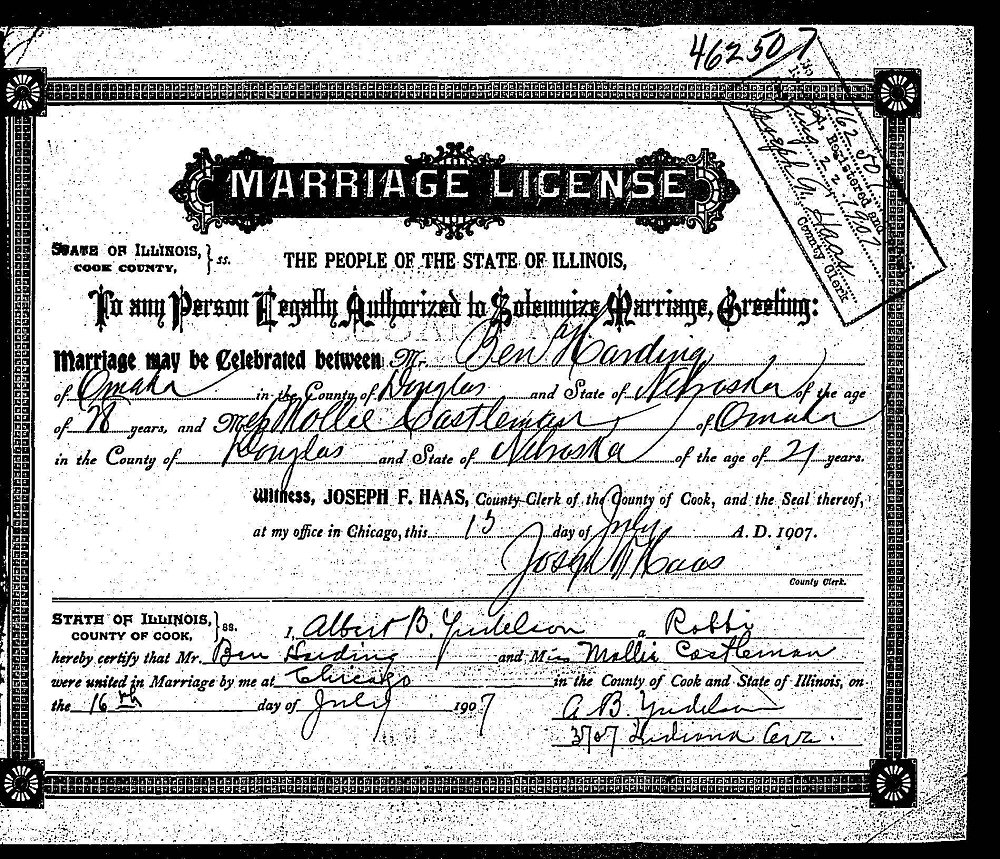 462507
No. 462507
Registered and
Aug 22 1907
Joseph F. Haas
County Clerk
MARRIAGE LICENSE
STATE OF ILLINOIS, } ss.
COOK COUNTY,
THE PEOPLE OF THE STATE OF ILLINOIS,
To any Person Legally Authorized to Solemnize Marriage, Greeting:
Marriage may be Celebrated between Mr. Ben Harding
of Omaha in the County of Douglas and State of Nebraska of the age
of 28 years, and M Mollie Castleman of Omaha
in the County of Douglas and State of Nebraska of the age of 21 years.
Witness, JOSEPH F. HAAS, County Clerk of the County of Cook, and the Seal thereof,
at my office in Chicago, this 15 day of July A. D. 1907.
Joseph F Haas
County Clerk.
STATE OF ILLINOIS, } ss.
COUNTY OF COOK,
I, Albert B. Yudelson a Rabbi
hereby certify that Mr. Ben Harding and Miss Mollie Castleman
were united in Marriage by me at Chicago in the County of Cook and State of Illinois, on
the 16th day of July 1907
A. B. Yudelson
3707 Indiana Ave.